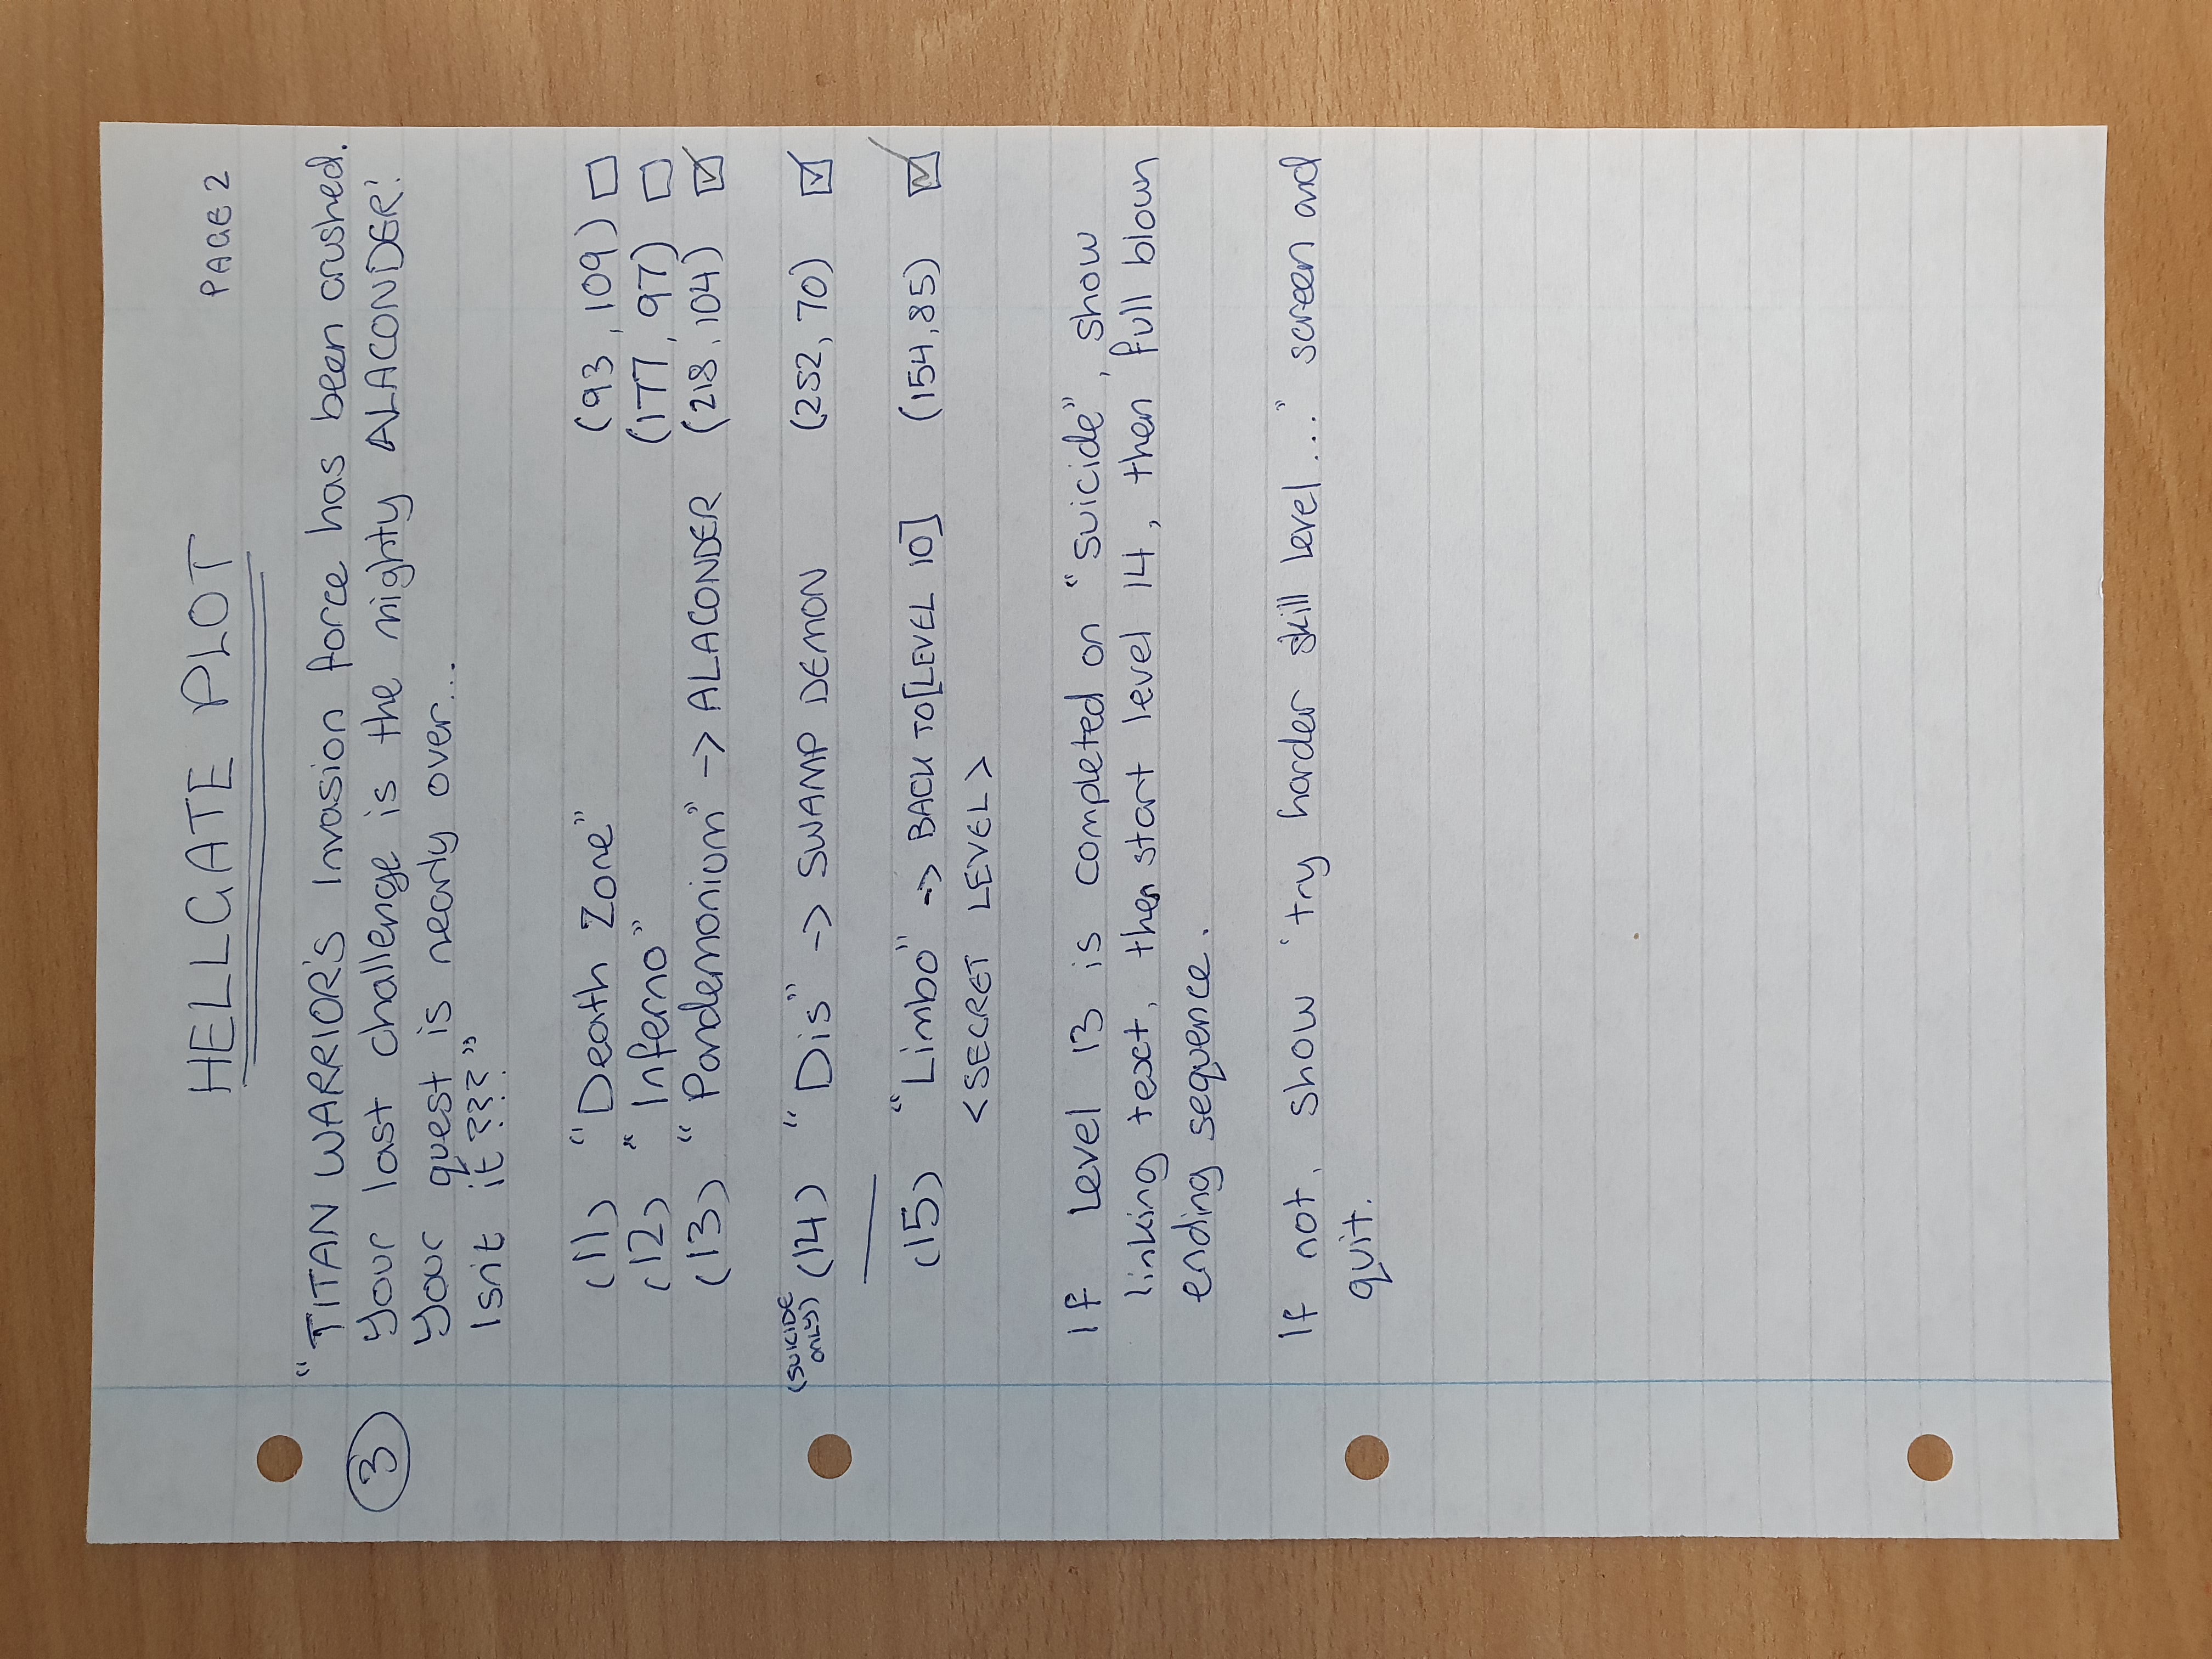 HELLGATE PLOT PAGE 2
"TITAN WARRIOR'S Invasion force has been crushed.
3 Your last challenge is the mighty ALACONDER!
Your quest is nearly over...
Isn't it???"
(11) "Death Zone" (93, 109) ☐
(12) "Inferno" (177, 97) ☐
(13) "Pandemonium" -> ALACONDER (218, 104) ☑
(SUICIDE ONLY) (14) "Dis" -> SWAMP DEMON (252, 70) ☑
(15) "Limbo" -> BACK TO [LEVEL 10] (154, 85) ☑
<SECRET LEVEL>
If Level 13 is completed on "suicide", show
linking text, then start level 14, then full blown
ending sequence.
If not, show 'try harder skill level..." screen and
quit.